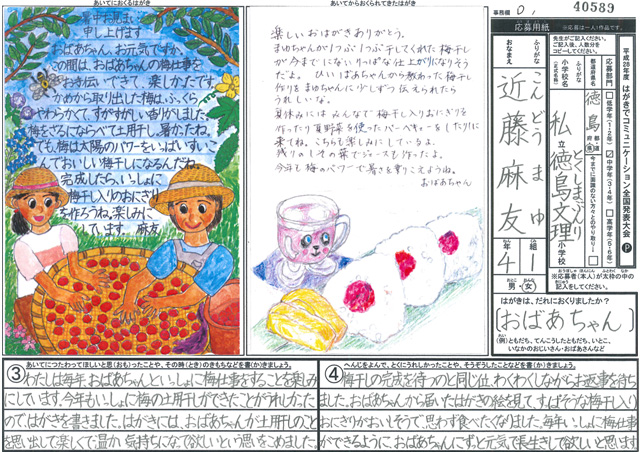 あいてにおくるはがき
暑中お見まい
申し上げます
おばあちゃん、お元気ですか。
この間は、おばあちゃんの梅仕事を
お手伝いできて、楽しかったです
かめから取り出した梅は、ふっくら
やわらかくて、すがすがしい香りがしました。
梅をさるにならべて土用干し。暑かったね。
でも梅は太陽のパワーをいっぱいすいこ
んでおいしい梅干しになるんだね。
完成したら、いっしょに
梅干し入りのおにぎり
を作ろうね。楽しみに
しています。 麻友
あいてからおくられてきたはがき
楽しいおはがきありがとう。
まゆちゃんが1つぶ1つぶ干してくれた梅干し
が今までにないりっぱな仕上がりになりそう
だよ。 ひいばあちゃんから教わった梅干し
作りをまゆちゃんに少しずつ伝えられたら
うれしいな。
夏休みにはみんなで梅干し入りおにぎりを
作ったり夏野菜を使ったバーベキューをしたりに
来てね。こちらも楽しみにしているよ。
残りのしその葉でジュースも作ったよ。
今年も梅のパワーで暑さを乗りこえようね。
おばあちゃん
事務欄
40589
応募用紙
※応募は一人1作品です。
平成28年度 はがきでコミュニケーション全国発表大会
P
先生がご記入ください。
ご記入後、人数分を
コピーしてください。
応募部門
□低学年(1・2年)
☑中学年(3・4年)
□高学年(5・6年)
都道府県名
徳島
都道府県
小学校名
(正式な名称)
ふりがな
とくしまぶんり
私立徳島文理
小学校
今までに面識のない方とのやり取り→□
おなまえ
ふりがな
こんどう まゆ
近藤麻友
年
4
組
1
男・女
※応募者(本人)が太枠の中の
記入をしてください。
はがきは、だれにおくりましたか?
おばあちゃん
(例)ともだち、てんこうしたともだち、いとこ、
いなかのおじいさん・おばあさんなど
③
あいてにつたわってほしいと思(おも)ったことや、その時(とき)のきもちなどを書(か)きましょう。
わたしは毎年、おばあちゃんといっしょに梅仕事をすることを楽しみ
にしています。今年もいっしょに梅の土用干しができたことがうれしかった
ので、はがきを書きました。はがきには、おばあちゃんが土用干しのこと
を思い出して楽しくて温かい気持ちになって欲しいという思いをこめました。
④
へんじをよんで、とくにうれしかったことや、そうぞうしたことなどを書(か)きましょう。
梅干しの完成を待つのと同じ位、わくわくしながらお返事を待ち
ました。おばあちゃんから届いたはがきの絵を見て、すっぱそうな梅干し入り
おにぎりがおいしそうで、思わず食べたくなりました。毎年、いっしょに梅仕事
ができるように、おばあちゃんにずっと元気で長生きして欲しいと思います。